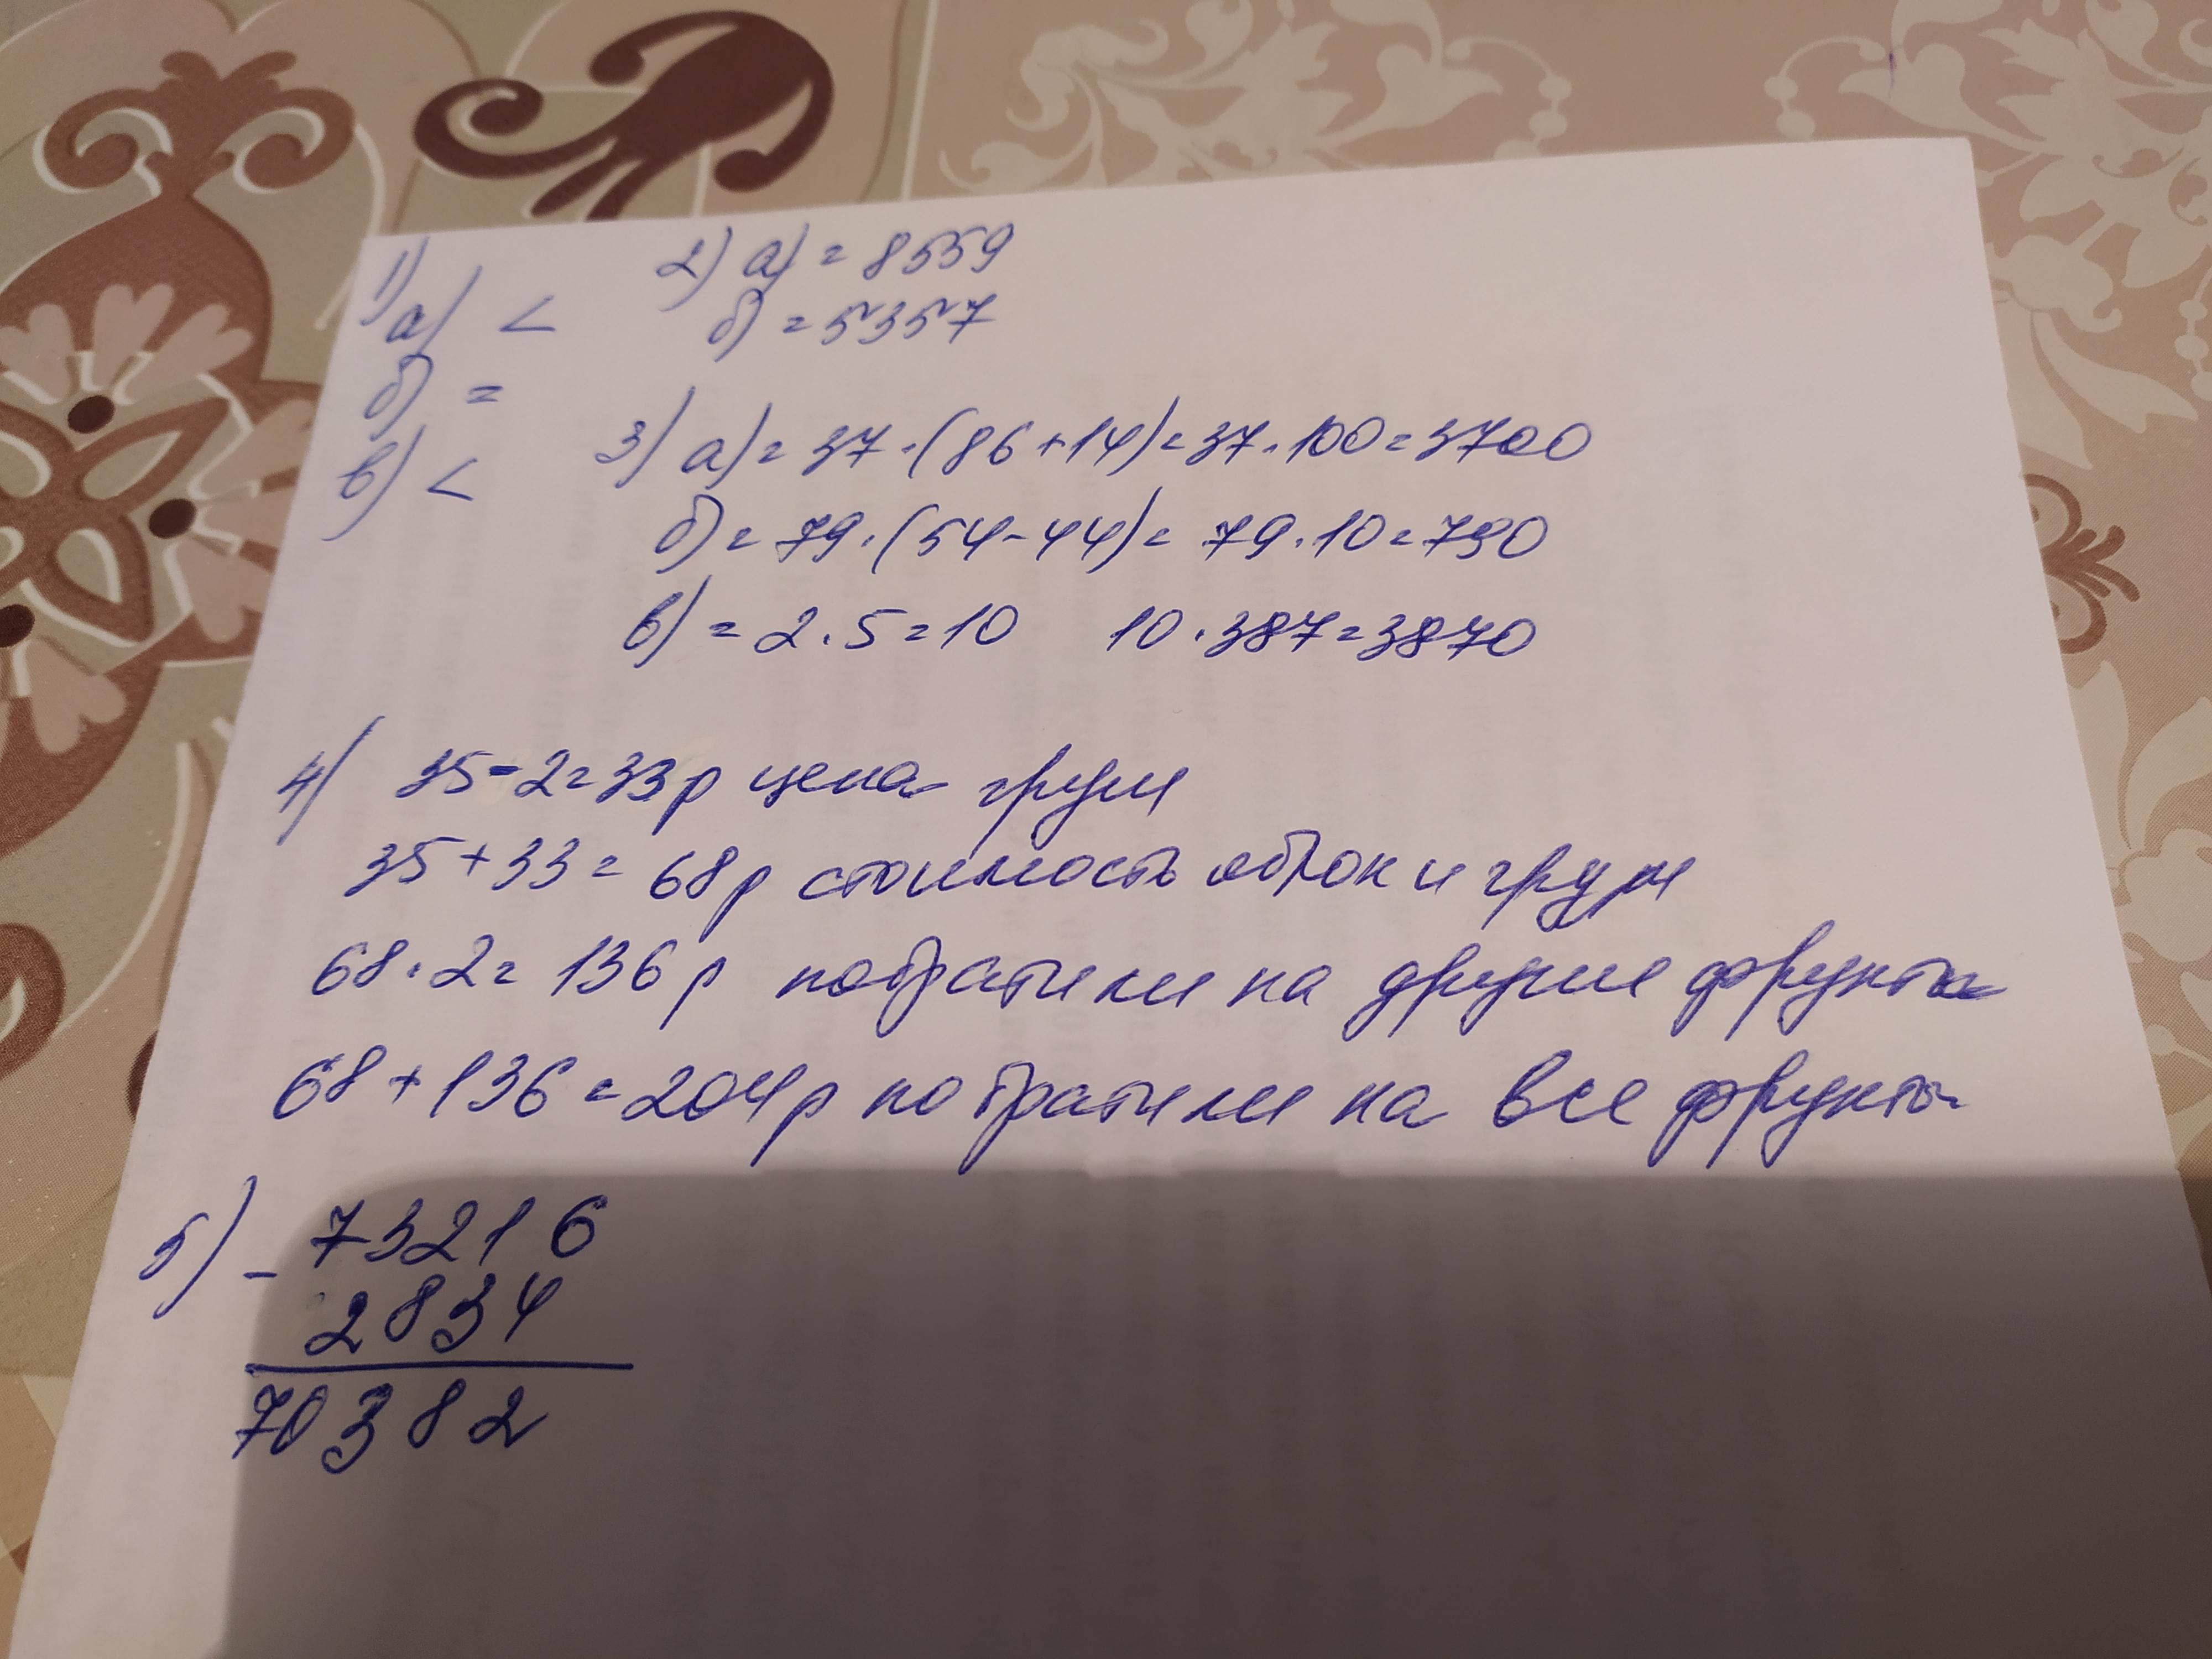 1)
а) <
б) =
в) <
2) а) = 8559
б) = 5357
3) а) = 37·(86+14)=37·100=3700
б) = 79·(54-44)= 79·10=790
в) = 2·5=10 10·387=3870
4) 35-2=33р цена груш
35+33= 68р стоимость яблок и груш
68·2= 136р потратили на другие фрукты
68+136=204р потратили на все фрукты
5) - 73216
2834
70382